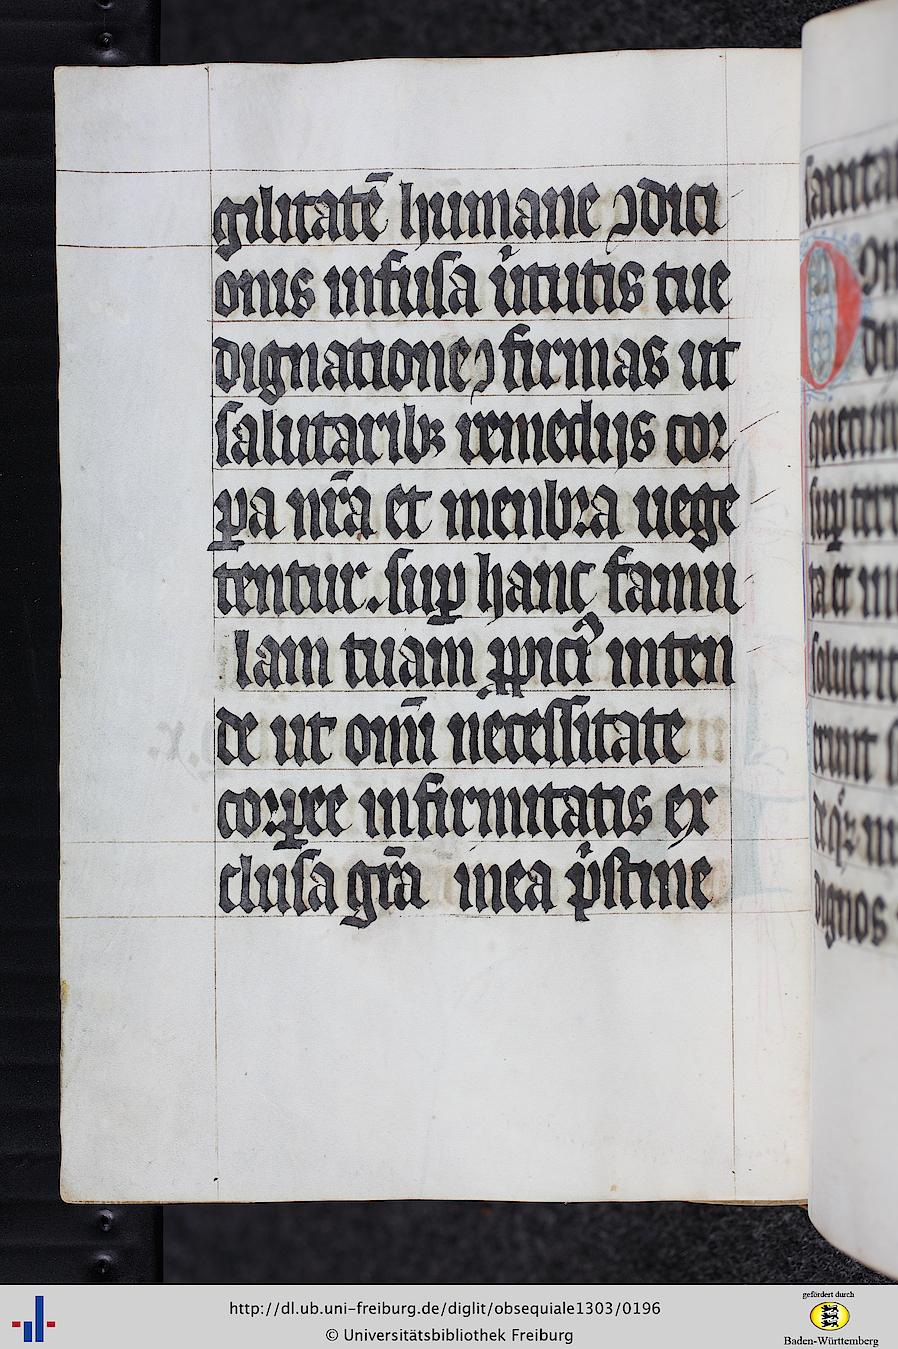 gilitatē humane ꝯdici
onis infusa v̄tutis tue
dignatione ꝯfirmas ut
salutaribꝫ remedijs cor
pa nr̄a et menbra uege
tentur. sup hanc famu
lam tuam ꝓpici᷒ inten
de ut omī necessitate
corꝑee infirmitatis ex
clusa gr̄a inea p̓stine
sanita
dig
quecun
suꝑ terr
ta et
soluerit
erunt
dignos
http://dl.ub.uni-freiburg.de/diglit/obsequiale1303/0196
© Universitätsbibliothek Freiburg
gefördert durch
Baden-Württemberg